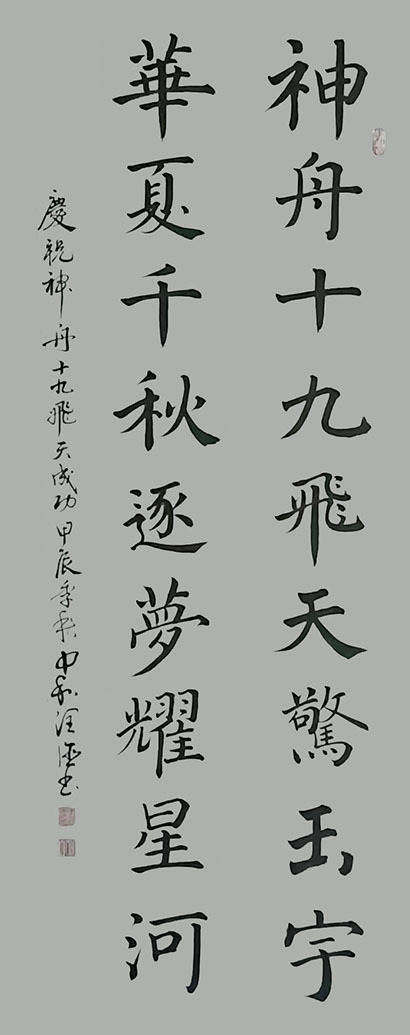 神舟十九飛天驚玉宇
華夏千秋逐夢耀星河
慶祝神舟十九飛天成功甲辰季秋中和汪德书